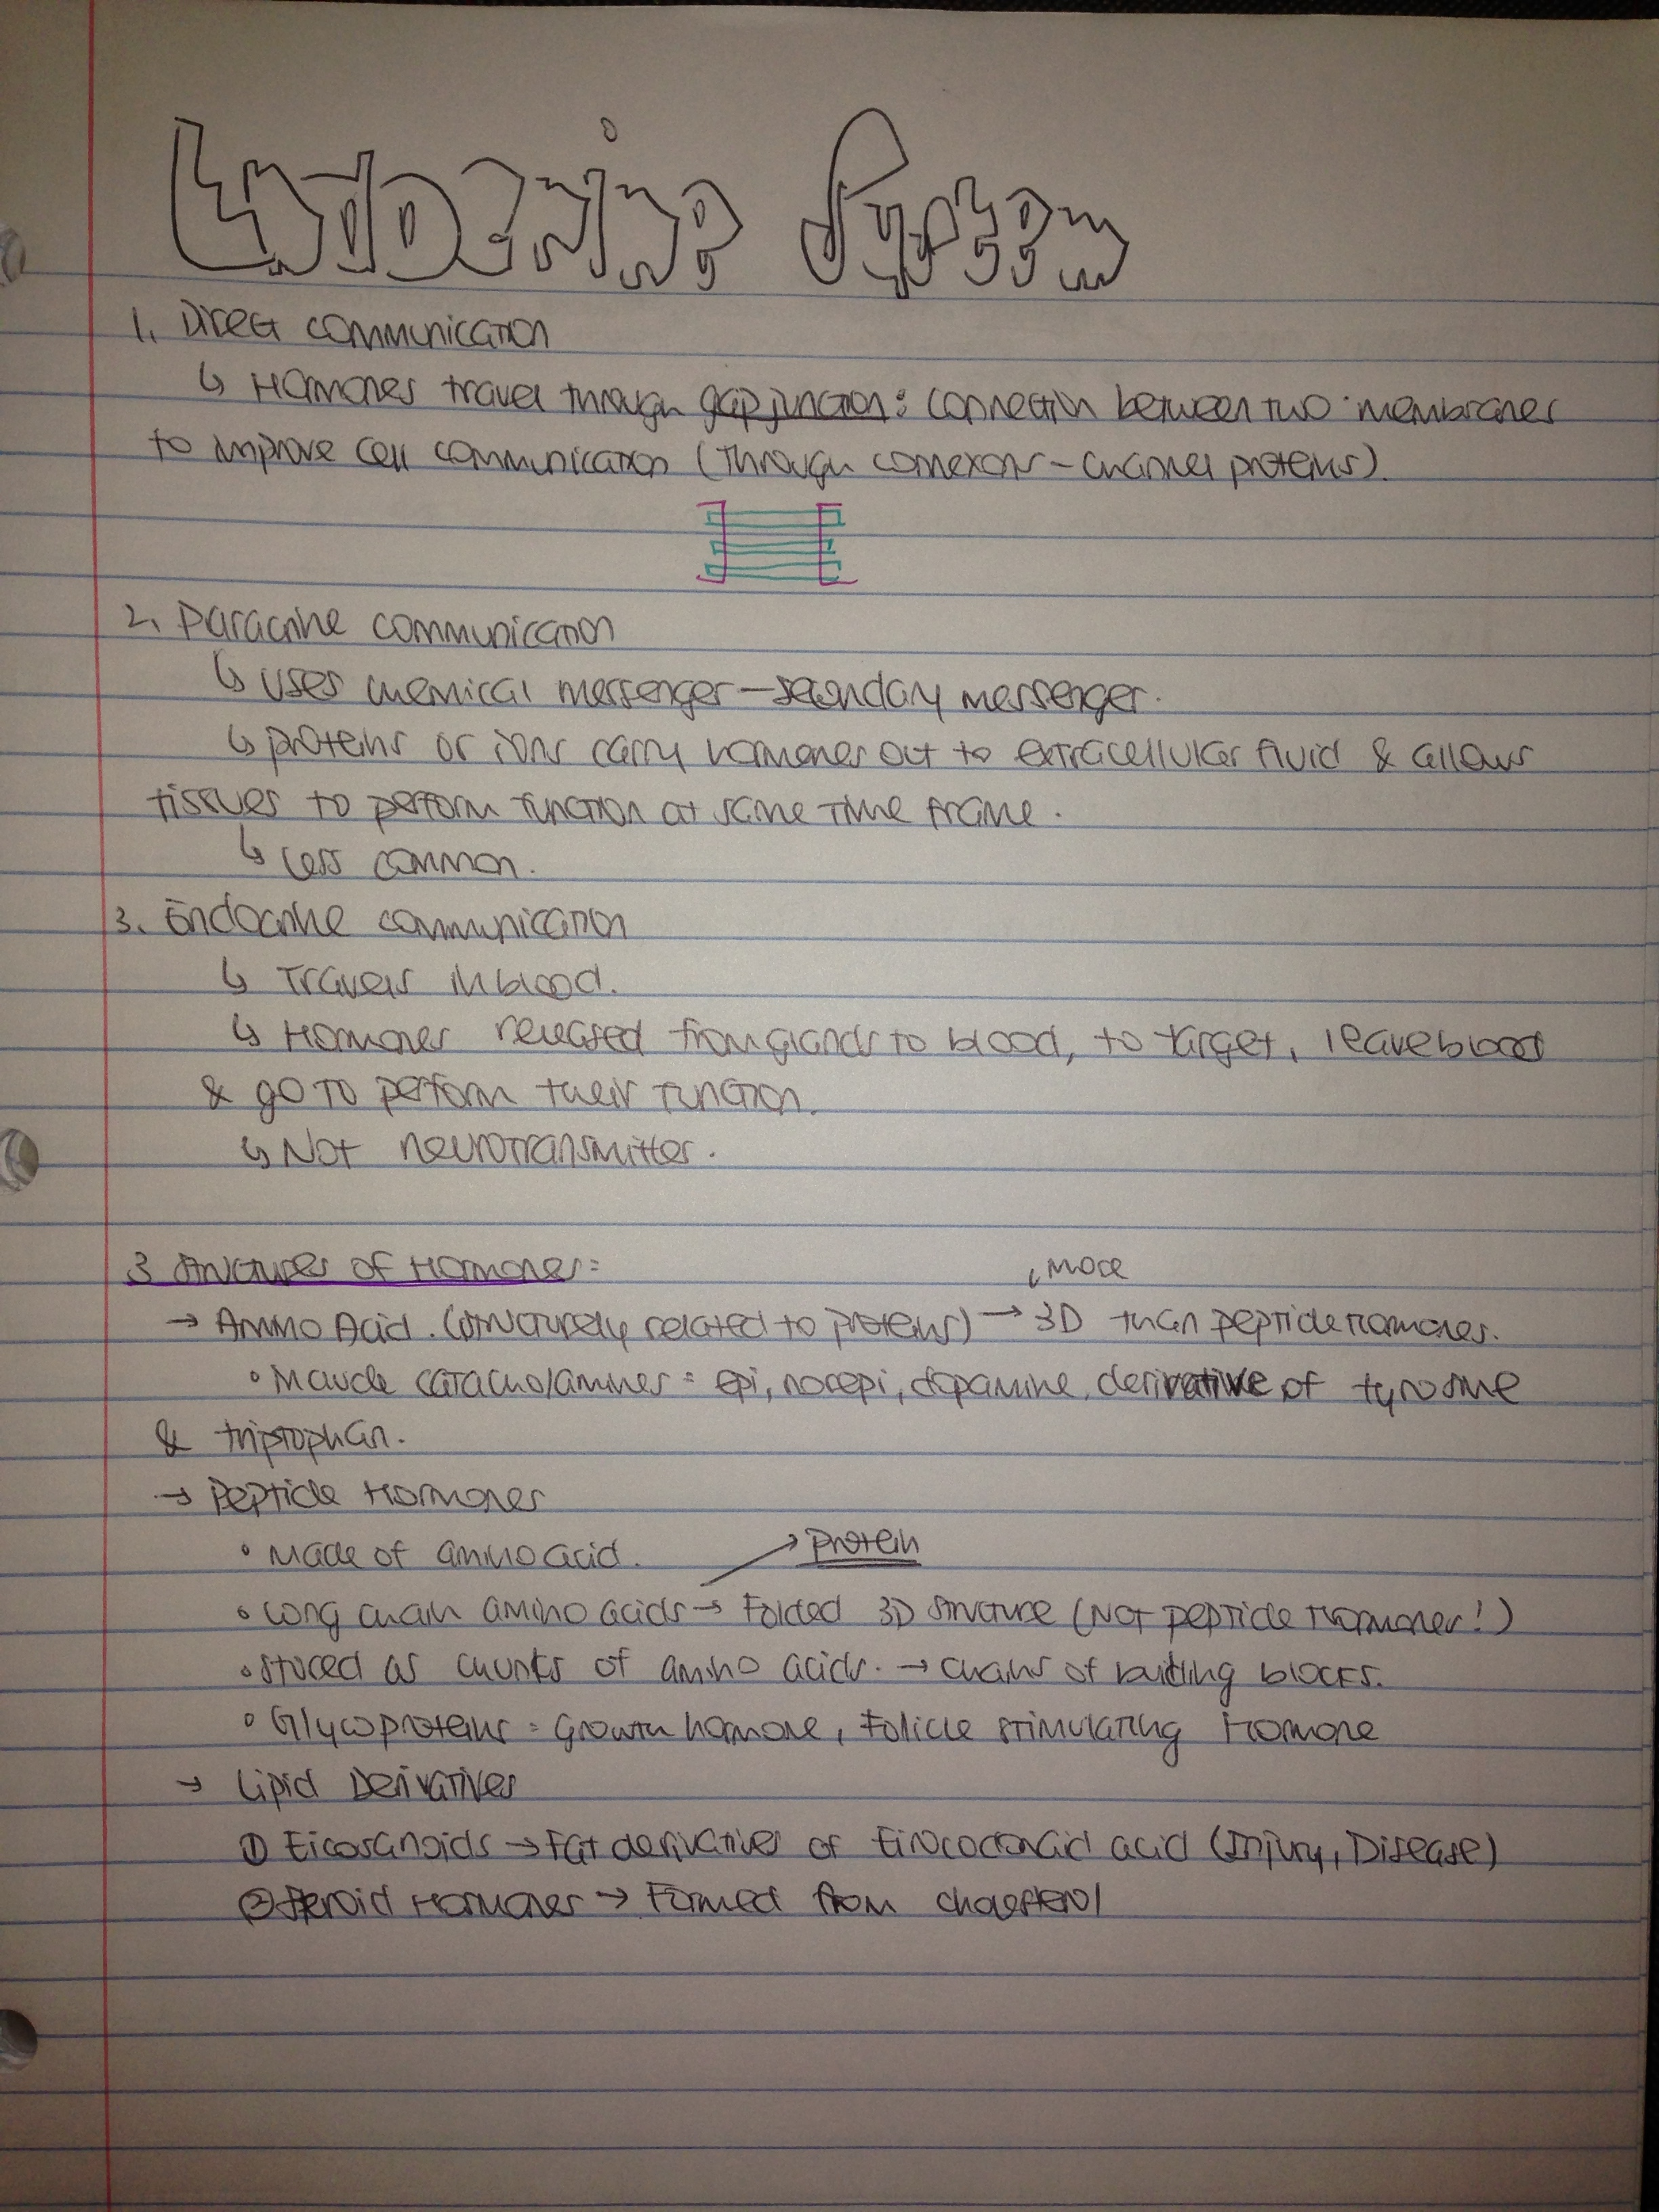 Endocrine System
1. Direct communication
↳ Hormones travel through gap junction: connection between two membranes
to improve cell communication (through connexons - channel proteins).
2. Paracrine communication
↳ uses chemical messenger - secondary messenger.
↳ proteins or ions carry hormones out to extracellular fluid & allows
tissues to perform function at same time frame.
↳ Less common.
3. Endocrine communication
↳ Travels in blood.
↳ Hormones released from glands to blood, to target, leave blood
& go to perform their function.
↳ Not neurotransmitter.
3 structures of Hormones:
more
→ Amino Acid. (structurely related to proteins) → 3D than peptide hormones.
• Include catacholamines: epi, norepi, dopamine, derivative of tyrosine
& triptophan.
→ Peptide Hormones
• Made of amino acid. → Protein
• Long chain amino acids → Folded 3D structure (Not peptide Hormones!)
• stored as chunks of amino acids. → chains of building blocks.
• Glycoproteins: Growth hormone, Folicle stimulating Hormone
→ Lipid Derivatives
① Eicosanoids → Fat derivatives of acid (Injury, Disease)
② Steroid Hormones → Formed from cholesterol